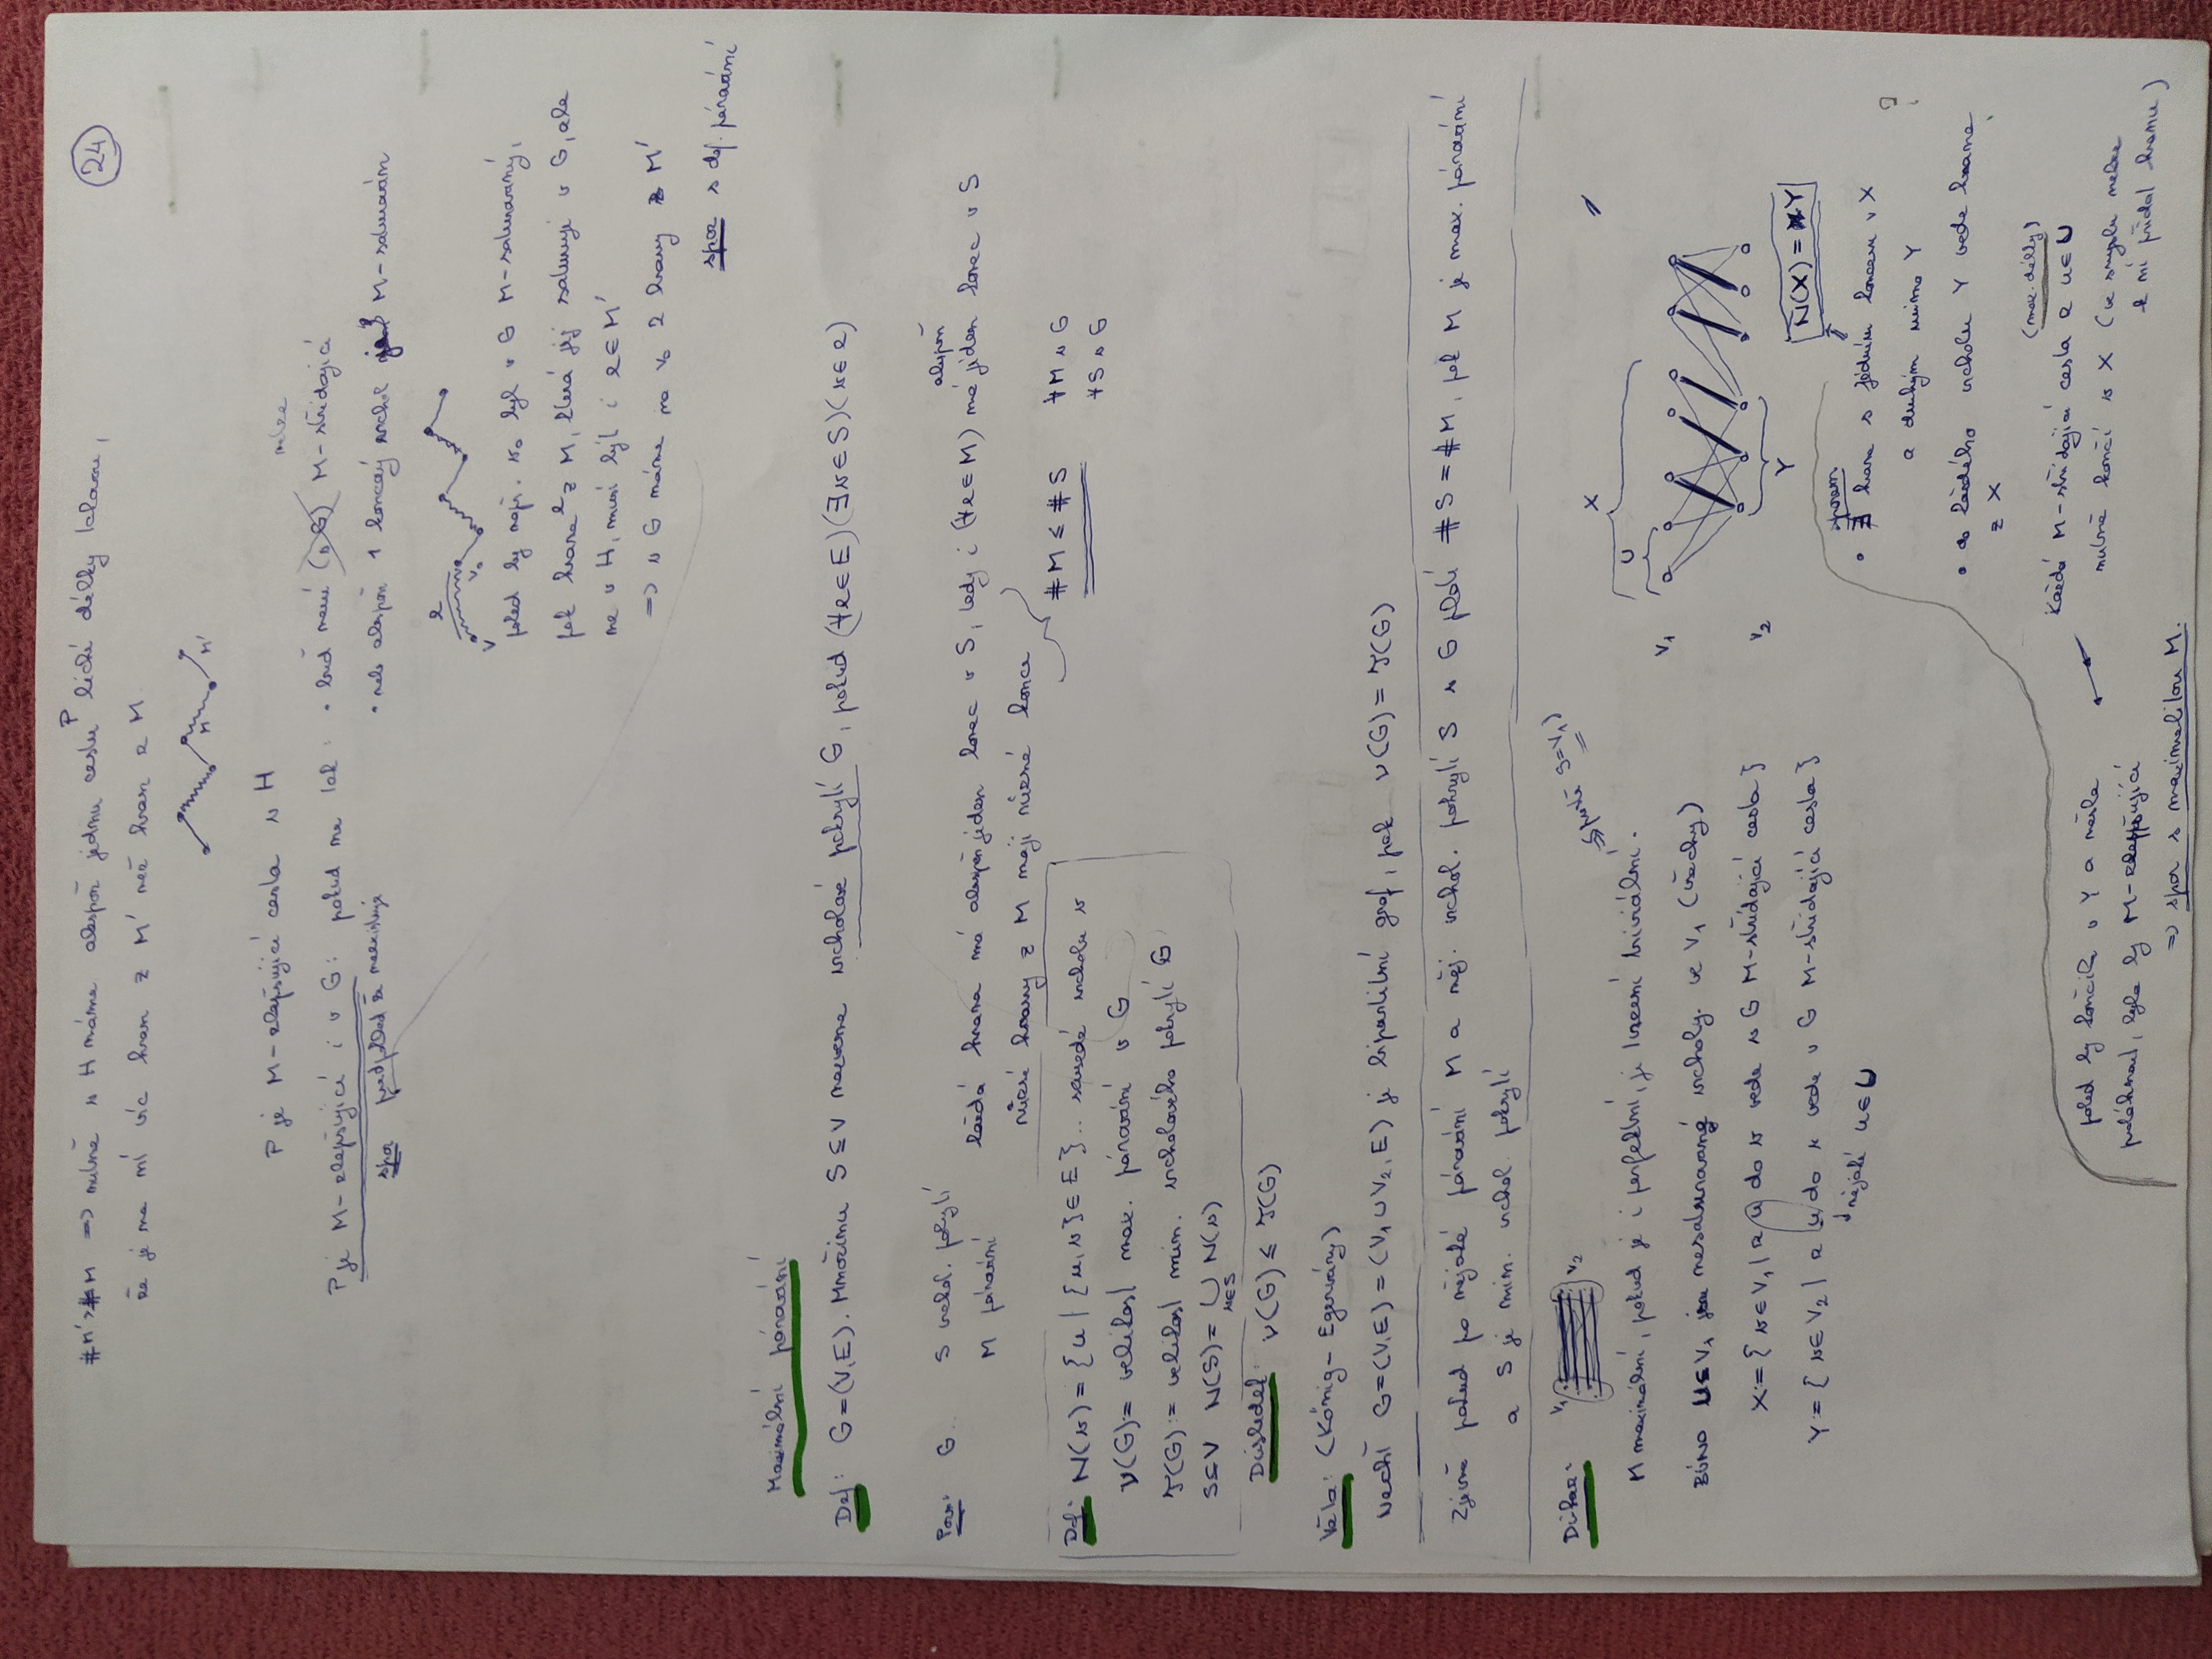 24
#M' > #M => nutně v H máme alespoň jednu cestu P liché délky takovou,
že je na ní víc hran z M' než hran z M
M M'
P je M-zlepšující cesta v H
P je M-zlepšující i v G: pokud ne tak: • buď není (v G) M-střídající
spor předpoklad že neexistuje
• nebo alespoň 1 koncový vrchol je M-saturován
e
v v₀
pokud by např. v₀ byl v G M-saturovaný,
pak hrana z M, která jej saturuje v G, ale
ne v H, musí být i e∈M'
=> v G máme na v₀ 2 hrany z M'
spor s def. párování
Maximální párování
Def: G=(V,E). Množinu S⊆V nazveme vrcholové pokrytí G, pokud (∀e∈E)(∃v∈S)(v∈e)
Pozn: G. S vrchol. pokrytí
M párování
každá hrana má alespoň jeden konec v S, tedy i (∀e∈M) má alespoň jeden konec v S
různé hrany z M mají různé konce
#M ≤ #S ∀M v G
∀S v G
Def: N(v) = {u | {u,v}∈E}.. sousedé vrcholu v
ν(G):= velikost max. párování v G
τ(G):= velikost min. vrcholového pokrytí G
S⊆V N(S)= ∪ N(v)
v∈S
Důsledek: ν(G) ≤ τ(G)
Věta: (König-Egerváry)
Nechť G=(V,E)=(V₁∪V₂,E) je bipartitní graf, pak ν(G)=τ(G)
Zjevně pokud pro nějaké párování M a něj. vrchol. pokrytí S v G platí #S=#M, pak M je max. párování
a S je min. vrchol. pokrytí
Důkaz: V₁ V₂
M maximální, pokud je i perfektní, je tvrzení triviální.
(právě S=V₁)
BÚNO U⊆V₁ jsou nesaturované vrcholy ve V₁ (všechny)
X:={v∈V₁ | z u do v vede v G M-střídající cesta}
Y:={v∈V₂ | z u do v vede v G M-střídající cesta}
nějaké u∈U
X
U
V₁
V₂
Y
N(X)=Y
sporem
• ∃ hrana s jedním koncem v X ?
a druhým mimo Y
• do každého vrcholu Y vede hrana
z X
každá M-střídající cesta z u∈U (max. délky)
nutně končí v X (ve smyslu nelze
k ní přidat hranu)
pokud by končila v Y a nešla
prodloužit, byla by M-zlepšující
=> spor s maximalitou M.